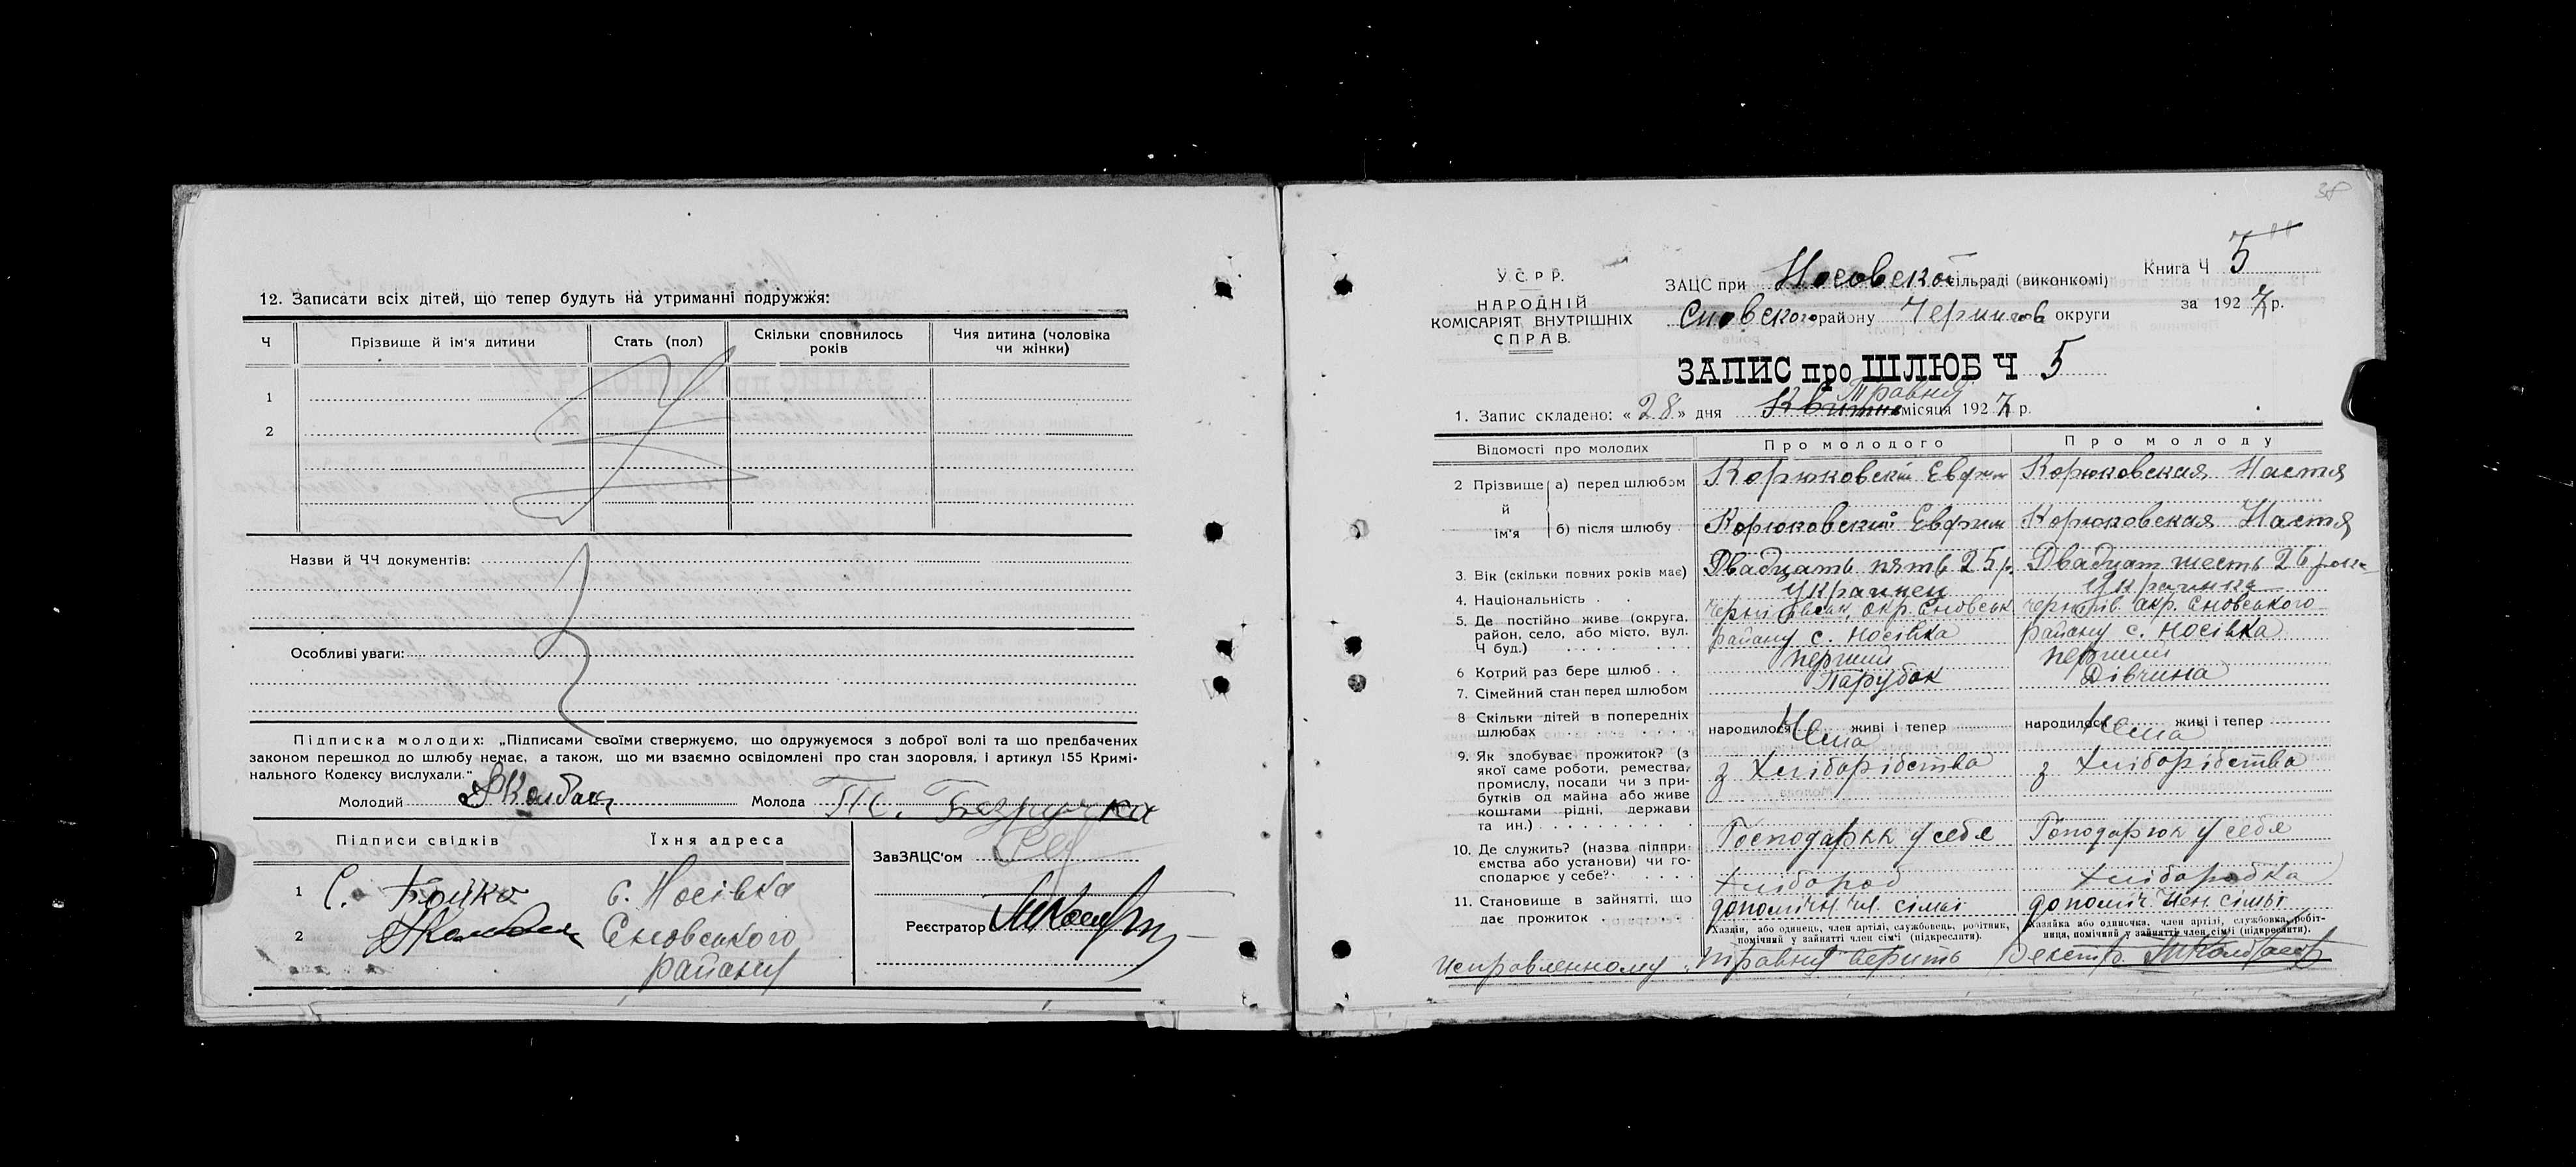 12. Записати всіх дітей, що тепер будуть на утриманні подружжя:
Ч Прізвище й ім'я дитини Стать (пол) Скільки сповнилось років Чия дитина (чоловіка чи жінки)
1
2
Назви й ЧЧ документів:
Особливі уваги:
Підписка молодих: „Підписами своїми стверджуємо, що одружуємося з доброї волі та що предбачених
законом перешкод до шлюбу немає, а також, що ми взаємно освідомлені про стан здоровля, і артикул 155 Кримі-
нального Кодексу вислухали."
Молодий Молода
Підписи свідків Їхня адреса
ЗавЗАЦС'ом
1 С. Бойко с. Носівка
2 Сновського
району
Реєстратор
38
У.С.Р.Р.
НАРОДНІЙ
КОМІСАРІЯТ ВНУТРІШНІХ
СПРАВ.
ЗАЦС при Носовской сільраді (виконкомі)
Сновского району Чернигов округи
Книга Ч 5
за 1927 р.
ЗАПИС про ШЛЮБ Ч 5
Травня
1. Запис складено: «28» дня Квітня місяця 1927 р.
Відомості про молодих Про молодого Про молоду
2 Прізвище й ім'я а) перед шлюбом Корюковский Евфим Корюковская Настя
б) після шлюбу Корюковский Евфим Корюковская Настя
3. Вік (скільки повних років має) Двадцать пять 25 р. Двадцат шесть 26
4. Національність Украинец Украинка
5. Де постійно живе (округа, Окр. Сновськ Окр. Сновського
район, село, або місто, вул. району с. Носівка району с. Носівка
Ч буд.)
6 Котрий раз бере шлюб первий первий
7. Сімейний стан перед шлюбом Парубок Дівчина
8 Скільки дітей в попередніх
шлюбах народилося Нема живі і тепер народилося Нема живі і тепер
9. Як здобуває прожиток? (з
якої саме роботи, ремества, з Хліборобства з Хліборобства
промислу, посади чи з при-
бутків од майна або живе
коштами рідні, держави
та ин.)
10. Де служить? (назва підпри- у себе у себе
ємства або установи) чи го-
сподарює у себе?
Хлібороб Хліборобка
11. Становище в зайнятті, що
дає прожиток допоміжн. чл. сімьі
Хазяїн, або одинець, член артілі, службовець, робітник,
помічний у зайнятті член сім'ї (підкреслити).
Хазяйка або одиночка, член артілі, службовка, робіт-
ниця, помічний у зайнятті член сім'ї (підкреслити).
Исправленному „травня" верить